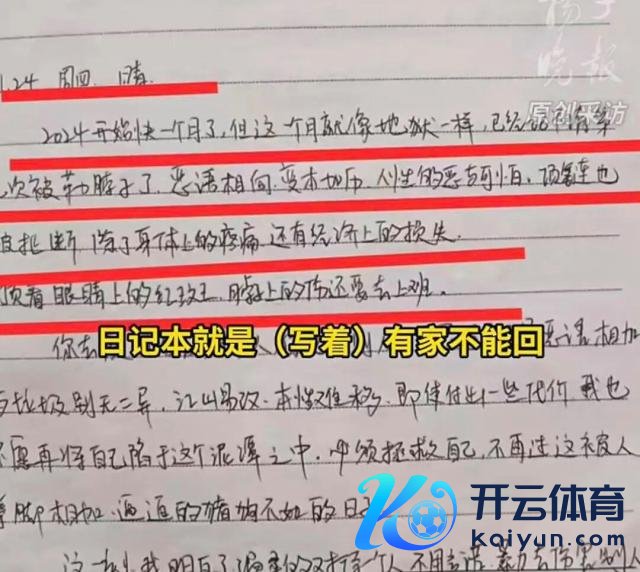 扬子
晚报
原创采访
1.24 周四 晴
2024开始快一个月了,但这个月就像地狱一样,已经记不清第
次被勒脖子了 恶语相向 变本加厉 人性的恶与可怕 项链也
被扯断 除了身体上的疼痛 还有经济上的损失
顶着眼睛上的红斑 脖子上的伤还要去上班。
你去
恶语相加
日记本就是(写着)有家不能回
与垃圾别无二异,江山易改 本性难移 即使付出一些代价 我也
不愿再将自己陷于这个泥潭之中 必须拯救自己,不再过这被人
拳脚相加 逼迫的猪狗不如的日子
这一刻我明白了 对待一个人 不用言语 暴力去伤害别人
开云体育
kaiyun.com